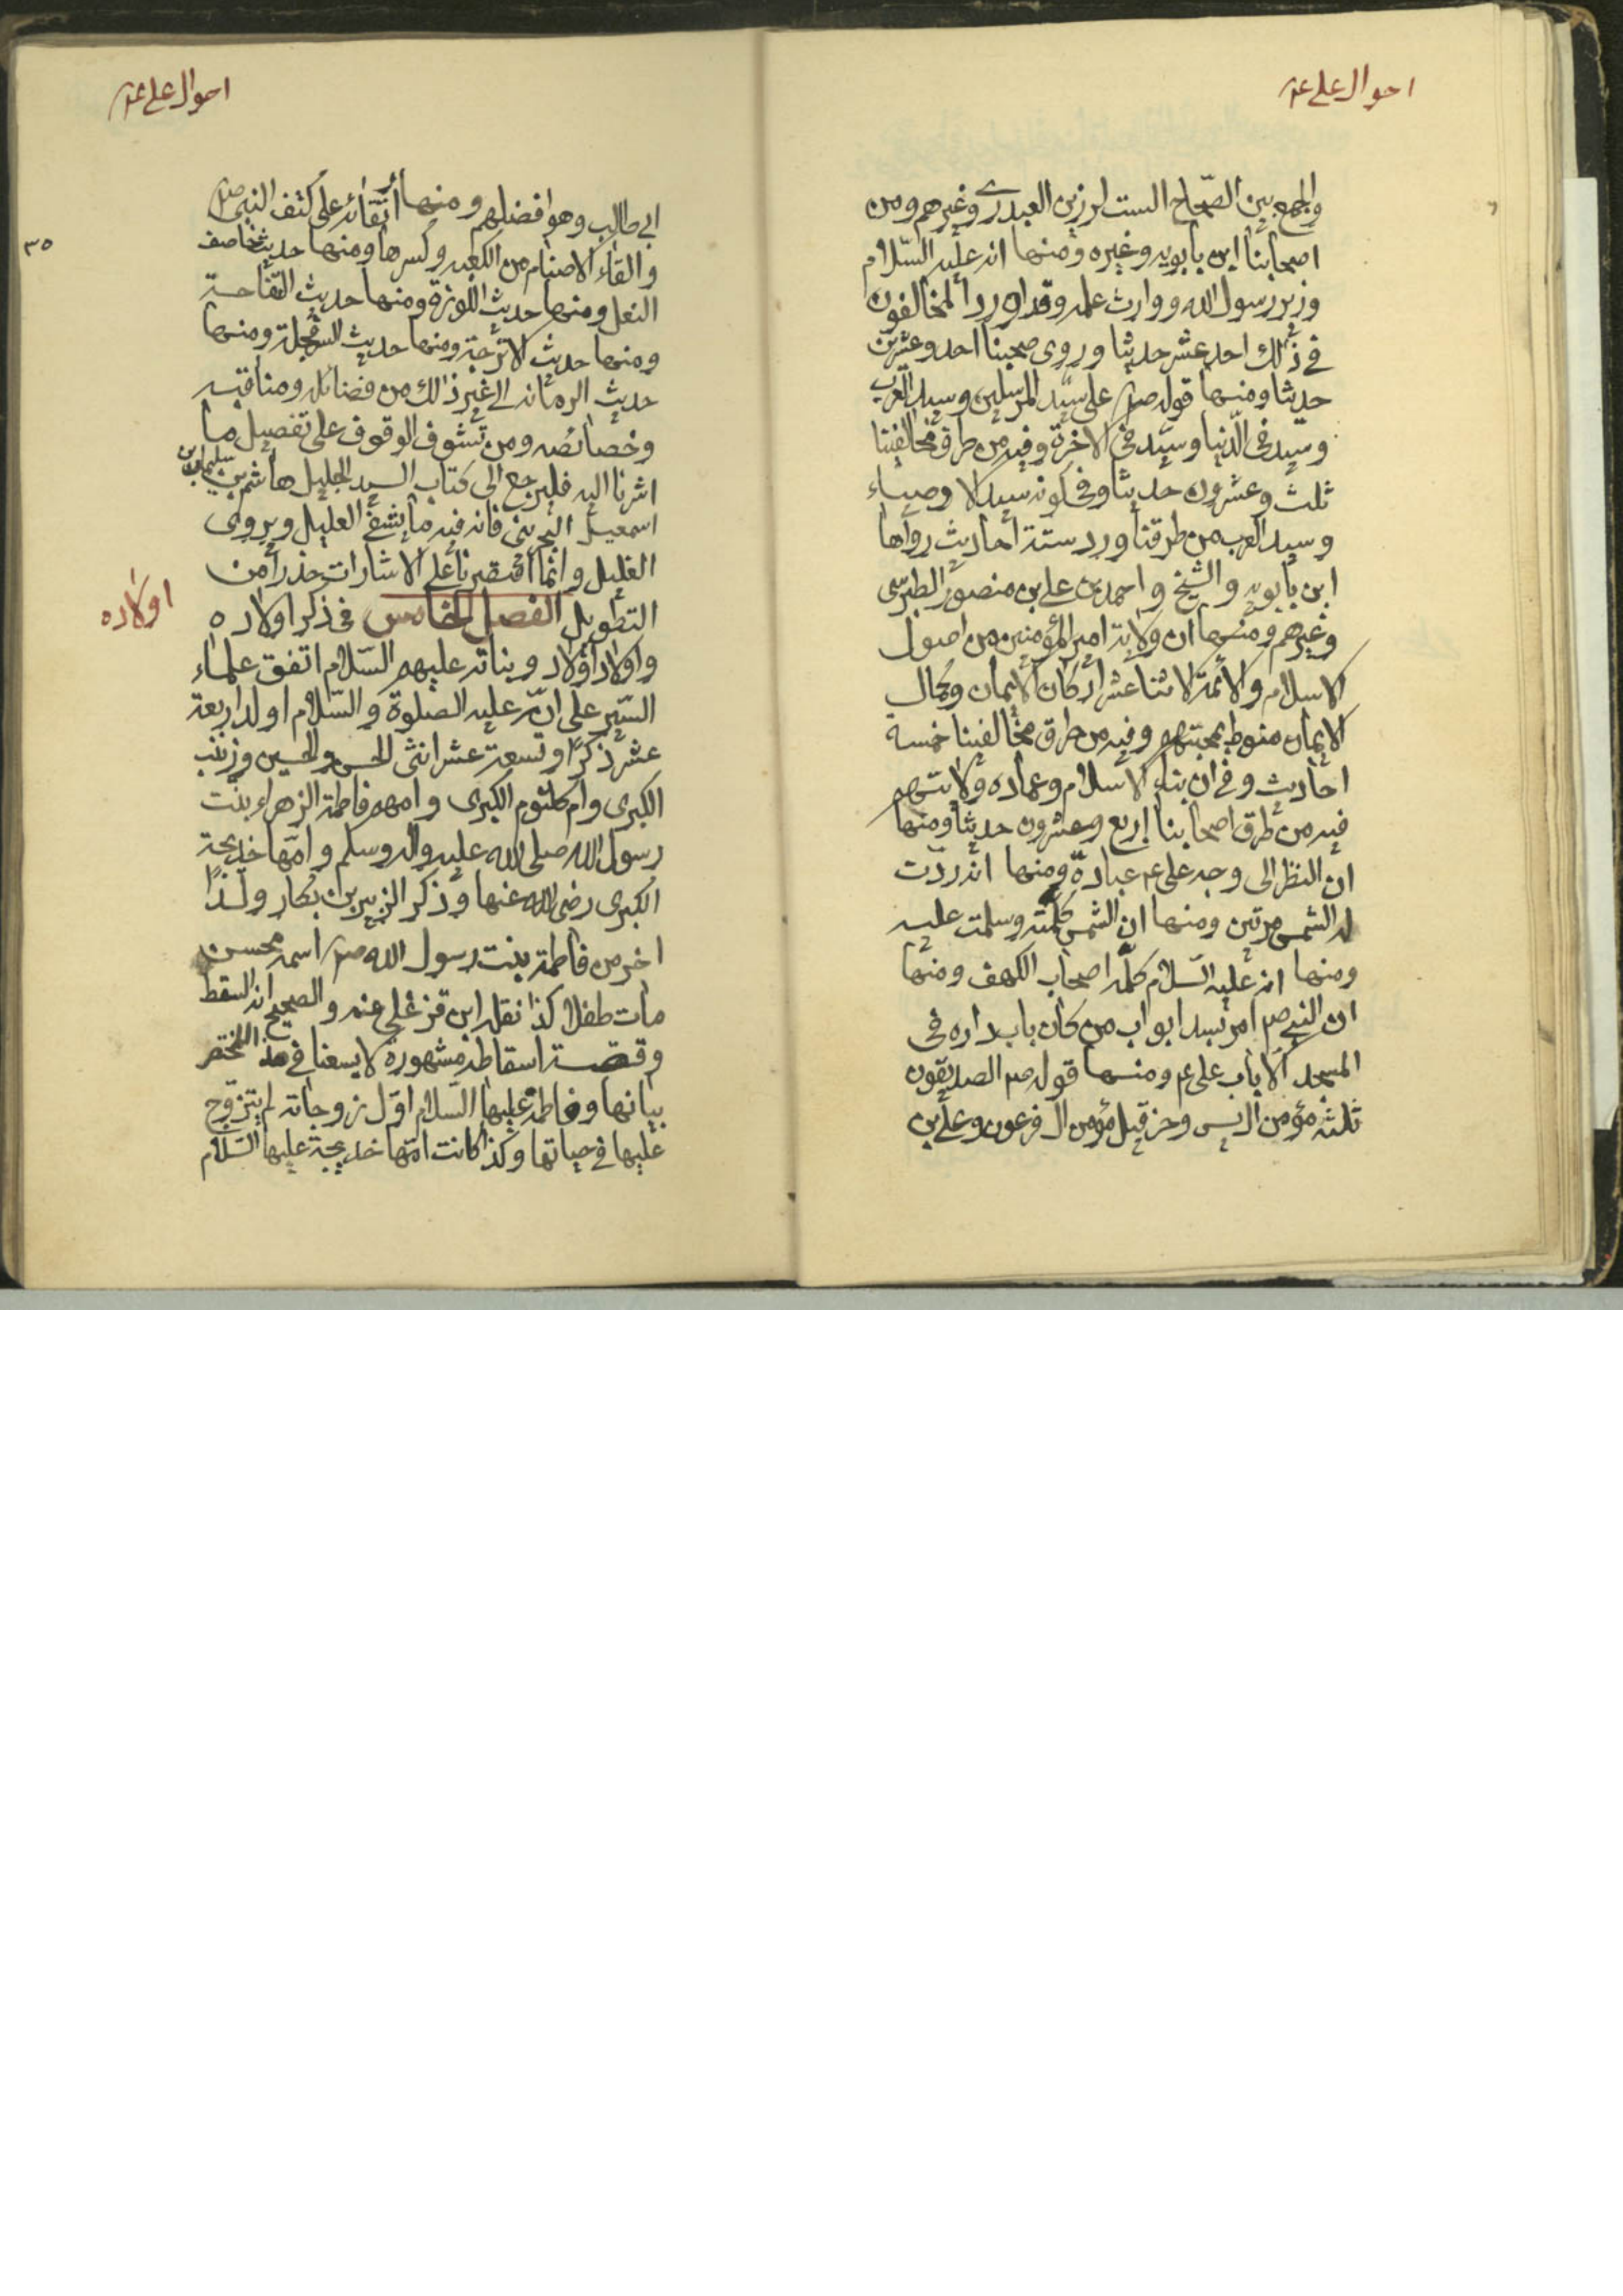 احوال علي ع
والجمع بين الصّحاح الست لرزين العبدري وغيرهم ومن
اصحابنا ابن بابويه وغيره ومنها انه عليه السّلام
وزير رسول الله ووارث علمه وقد اورد المخالفون
في ذلك احد عشر حديثا وروى صحبنا احد وعشرين
حديثا ومنها قوله صم علي سيّد المرسلين وسيد العرب
وسيد في الدّنيا وسيّد في الاخرة وفيه من طرق مخالفينا
ثلث وعشرون حديثا وفي كونه سيد الاوصياء
وسيد العرب من طرقنا ورد ستة احاديث رواها
ابن بابويه والشيخ واحمد بن علي بن منصور الطبرسي
وغيرهم ومنها ان ولاية امير المؤمنين من اصول
الاسلام والائمة الاثنا عشر اركان الايمان وكمال
الايمان منوط بمحبتهم وفيه من طرق مخالفينا خمسة
احاديث وفي ان بناء الاسلام وعماده ولايتهم
فيه من طرق اصحابنا اربع وعشرون حديثا ومنها
ان النظر الى وجه علي ع عبادة ومنها انه ردّت
له الشمس مرتين ومنها ان الشمس كلمته وسلمت عليه
ومنها انه عليه السّلام كلّمه اصحاب الكهف ومنها
ان النبي صم امر بسد ابواب من كان باب داره في
المسجد الا باب علي ع ومنها قوله صم الصديقون
ثلثه مؤمن ال يس وحزقيل مؤمن ال فرعون وعلي بن
احوال علي ع
٣٥
ابي طالب وهو افضلهم ومنها ارتقائه على كتف النبي صم
والقاء الاصنام من الكعبه وكسرها ومنها حديث خاصف
النعل ومنها حديث اللوزة ومنها حديث التفاحة
ومنها حديث الاترجة ومنها حديث السفرجلة ومنها
حديث الرمانه الى غير ذلك من فضائله ومناقبه
وخصائصه ومن تشوف الوقوف على تفصيل ما
اشرنا اليه فليرجع الى كتاب السيد الجليل هاشم بن سليمان بن
اسمعيل البحريني فانه فيه ما يشفي العليل ويروي
الغليل وانما اقتصرنا على الاشارات حذرا من
التطويل الفصل الخامس في ذكر اولاده
اولاده
واولاد اولاد وبناته عليهم السّلام اتفق علماء
السّير على انّه عليه الصلوة والسّلام اولد اربعة
عشر ذكرًا وتسعة عشر انثى الحسن والحسين وزينب
الكبرى وام كلثوم الكبرى وامهم فاطمة الزهراء بنت
رسول الله صلى الله عليه واله وسلم وامّها خديجة
الكبرى رضى الله عنها وذكر الزبير بن بكار ولدًا
اخر من فاطمة بنت رسول الله صم اسمه محسن
مات طفلا كذا نقله ابن قزغلي عنه والصحيح انه السقط
وقصة اسقاطه مشهورة لا يسعنا في هذا المختصر
بيانها وفاطمة عليها السّلام اوّل زوجاته لم يتزوّج
عليها في حياتها وكذا كانت امّها خديجة عليها السّلام